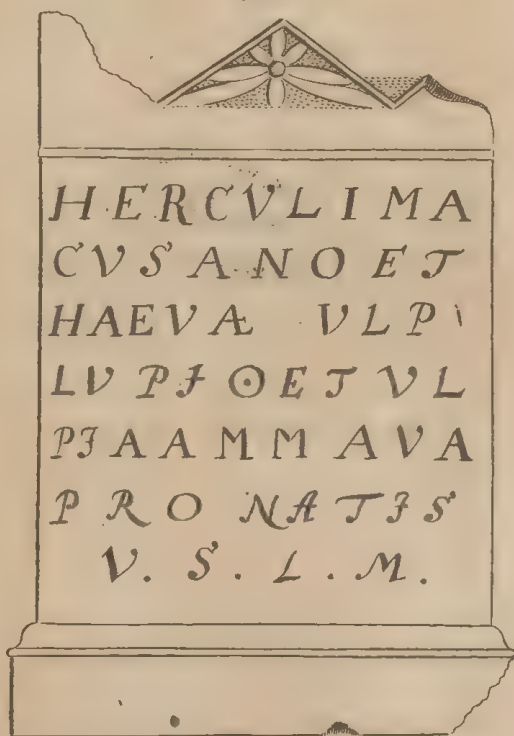 HERCVLI MA
CVSANO ET
HAEVÆ VLP
LVPIO ET VL
PIA AMMAVA
PRO NATIS
V. S. L. M.